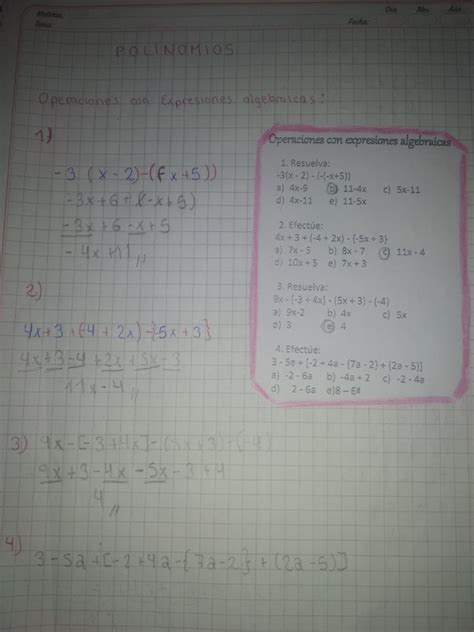 Materia:
Tema:
Día Mes Año
Fecha:
POLINOMIOS
Operaciones con Expresiones algebraicas:
1)
-3 (x-2)-(-(-x+5))
-3x+6+(-x+5)
-3x+6-x+5
-4x+11 //
2)
4x+3+(-4+2x)-{-5x+3}
4x+3-4+2x+5x-3
11x-4 //
3) 9x-[-3+4x]-(5x+3)-(-4)
9x+3-4x-5x-3+4
4 //
4)
3-5a+[-2+4a-{7a-2}+(2a-5)]
Operaciones con expresiones algebraicas
1. Resuelva:
-3(x - 2) - (-(-x+5))
a) 4x-9 b) 11-4x c) 5x-11
d) 4x-11 e) 11-5x
2. Efectúe:
4x + 3 + (-4 + 2x) - {-5x + 3}
a) 7x - 5 b) 8x - 7 c) 11x - 4
d) 10x + 5 e) 7x + 3
3. Resuelva:
9x - [-3 + 4x] - (5x + 3) - (-4)
a) 9x-2 b) 4x c) 5x
d) 3 e) 4
4. Efectúe:
3 - 5a + [-2 + 4a - {7a - 2} + (2a - 5)]
a) -2 - 6a b) -4a + 2 c) -2 - 4a
d) 2 - 6a e)8 – 6a